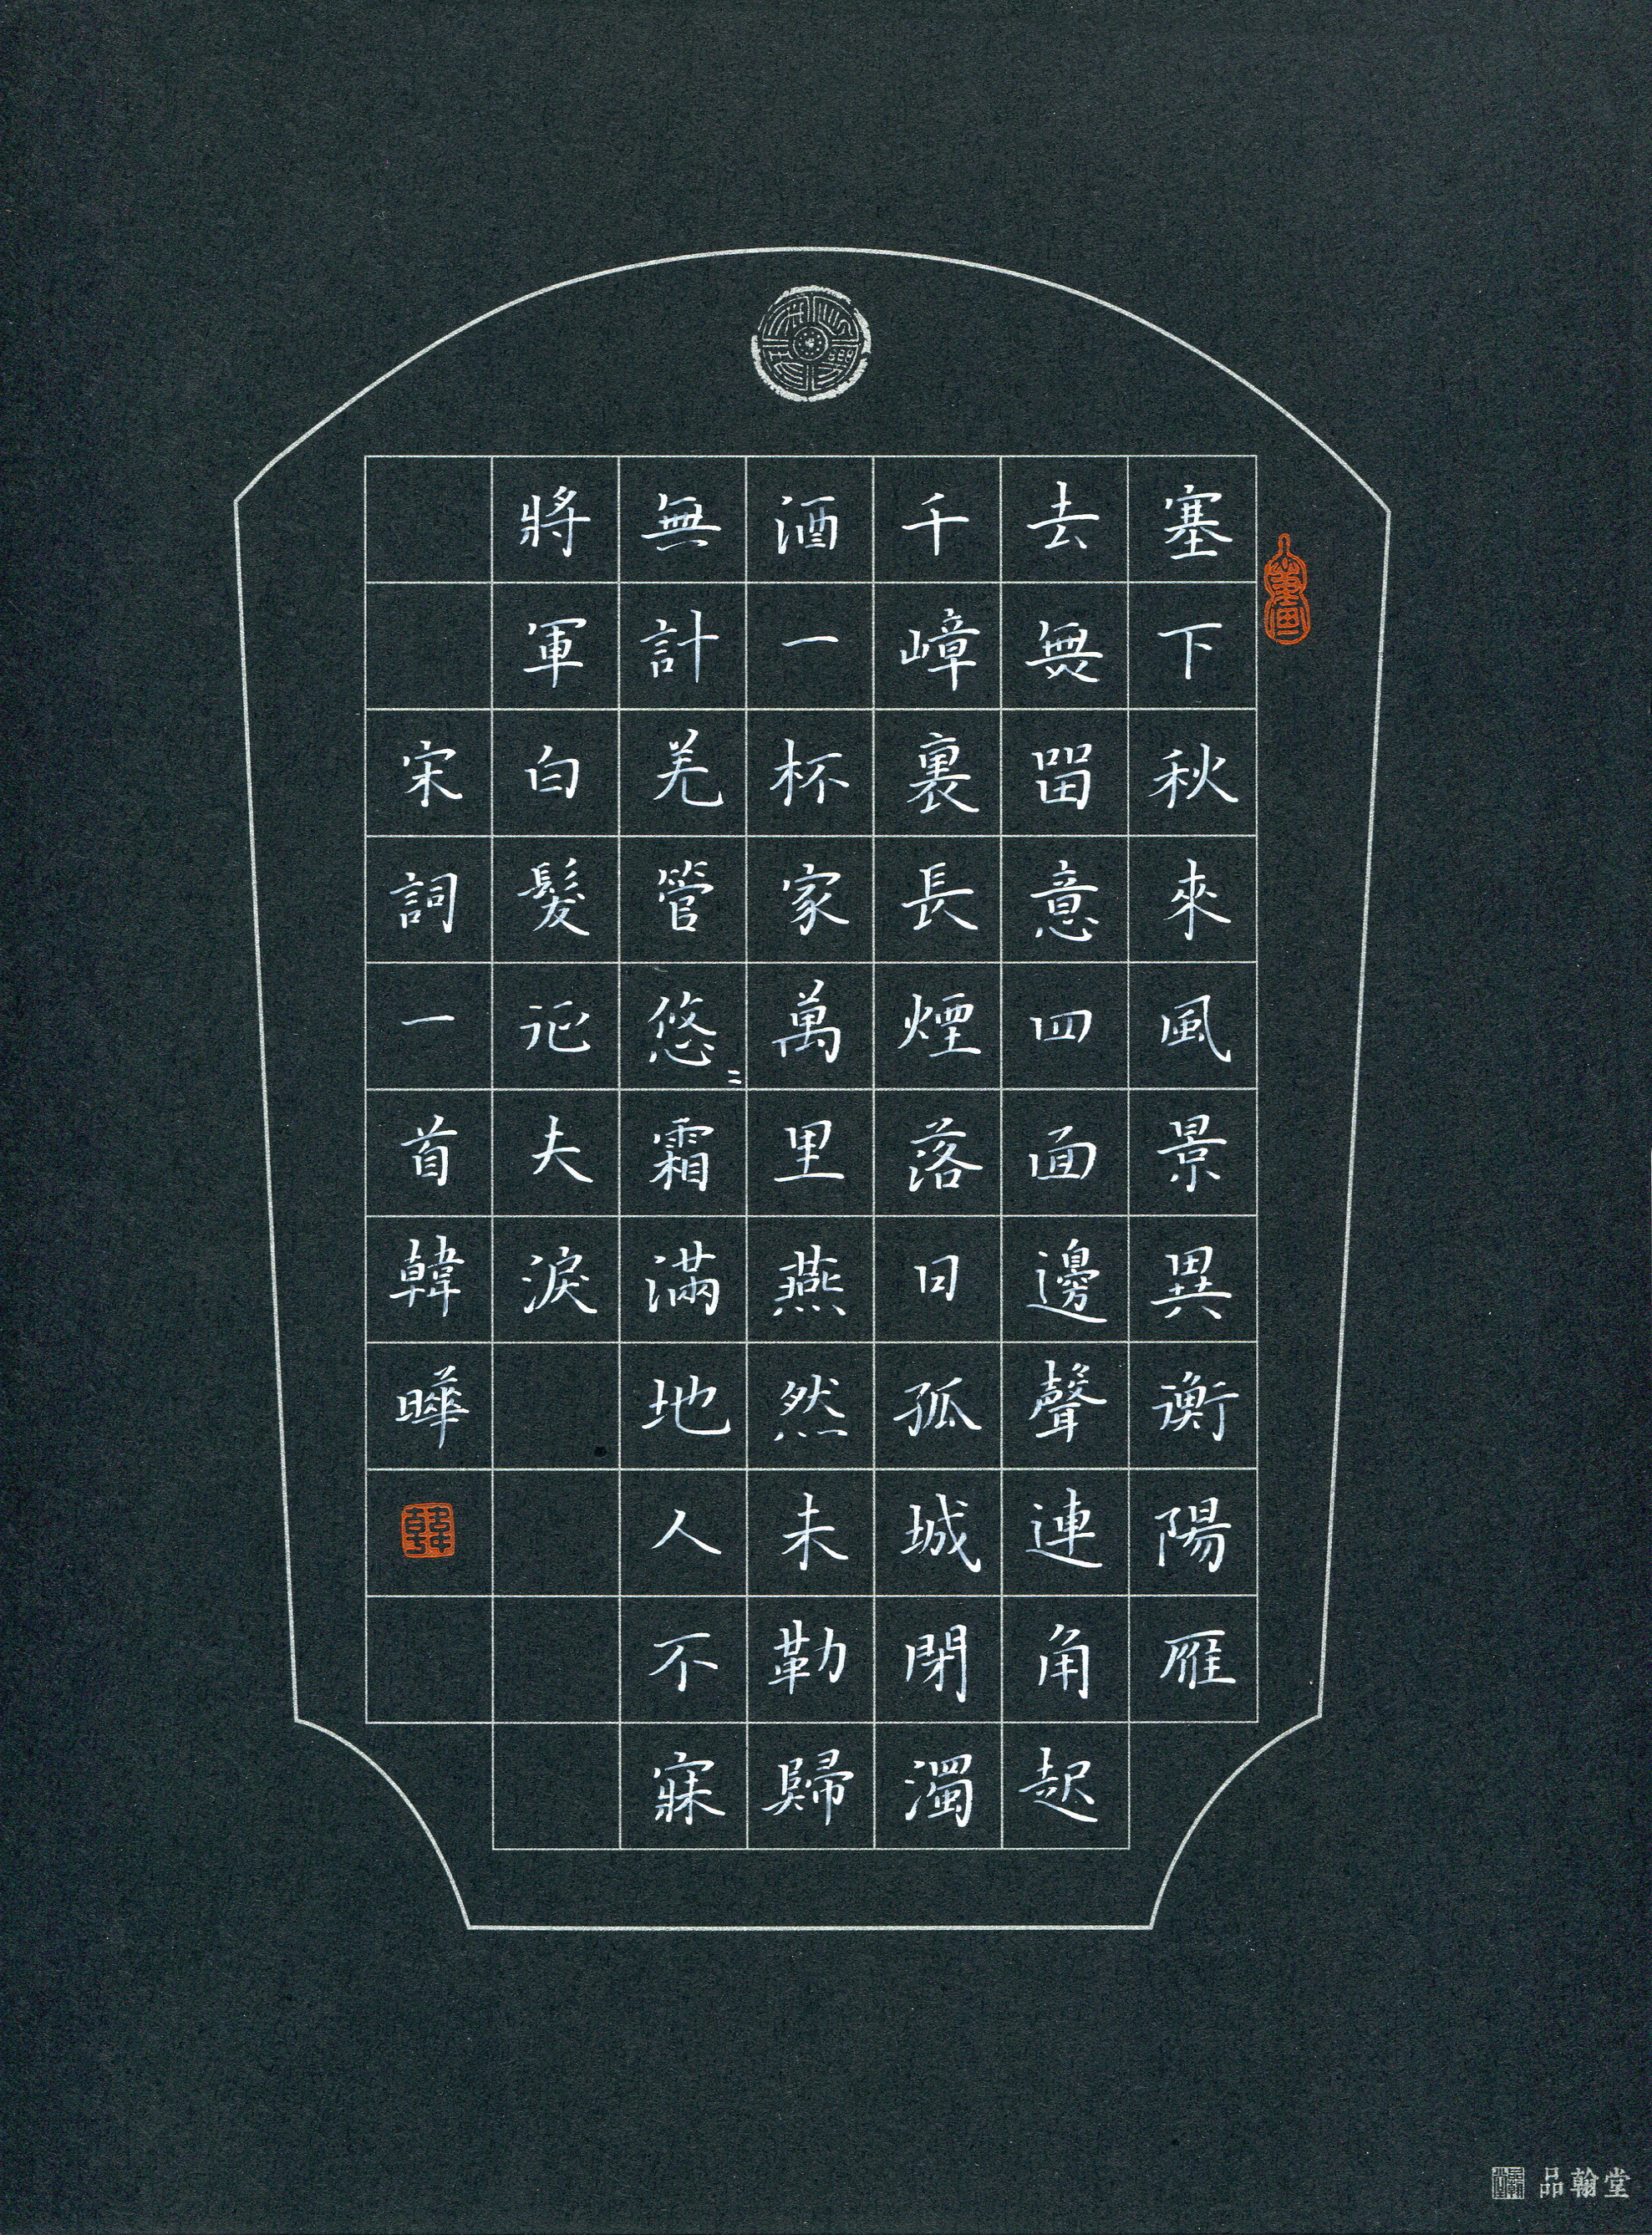 塞下秋來風景異衡陽雁
去無留意四面邊聲連角起
千嶂裏長煙落日孤城閉濁
酒一杯家萬里燕然未勒歸
無計羌管悠〻霜滿地人不寐
將軍白髮征夫淚
宋詞一首韓曄
韓
品翰堂